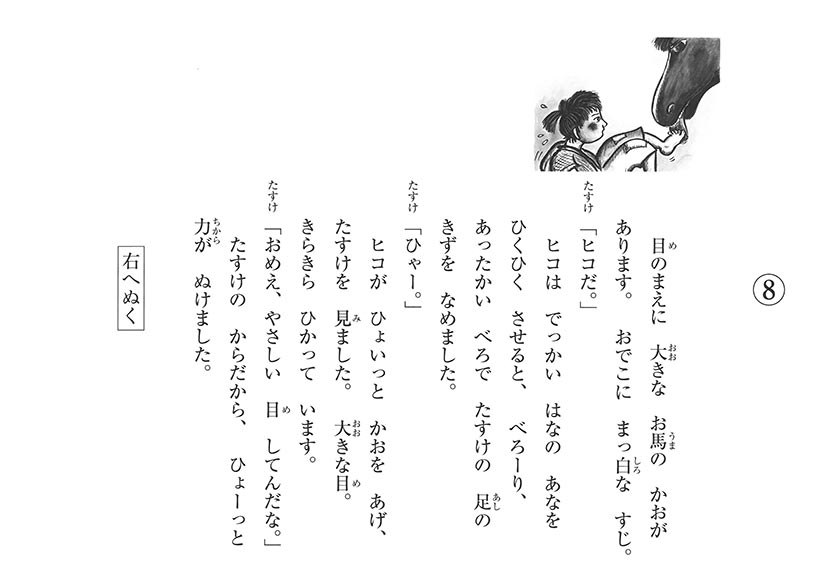 ⑧
目のまえに 大きな お馬の かおが
あります。 おでこに まっ白な すじ。
たすけ「ヒコだ。」
ヒコは でっかい はなの あなを
ひくひく させると、 べろーり、
あったかい べろで たすけの 足の
きずを なめました。
たすけ「ひゃー。」
ヒコが ひょいっと かおを あげ、
たすけを 見ました。 大きな目。
きらきら ひかって います。
たすけ「おめえ、やさしい 目 してんだな。」
たすけの からだから、 ひょーっと
力が ぬけました。
右へぬく